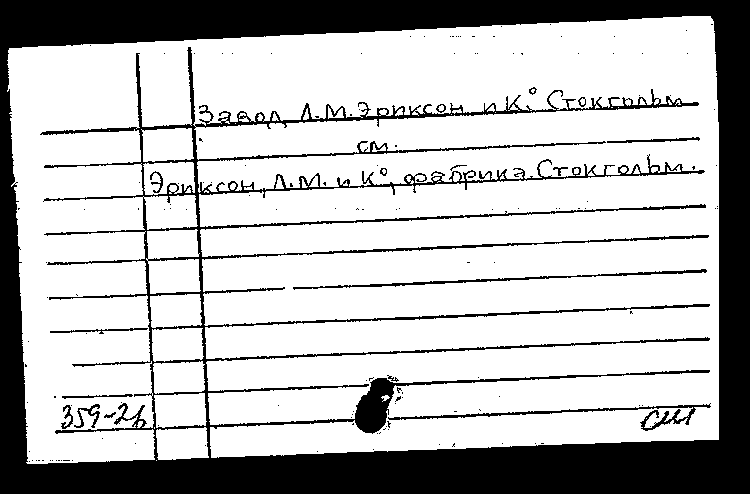 Завод Л.М. Эриксон и К.° Стокгольм
см.
Эриксон, Л.М. и К°, фабрика. Стокгольм.
359-2б